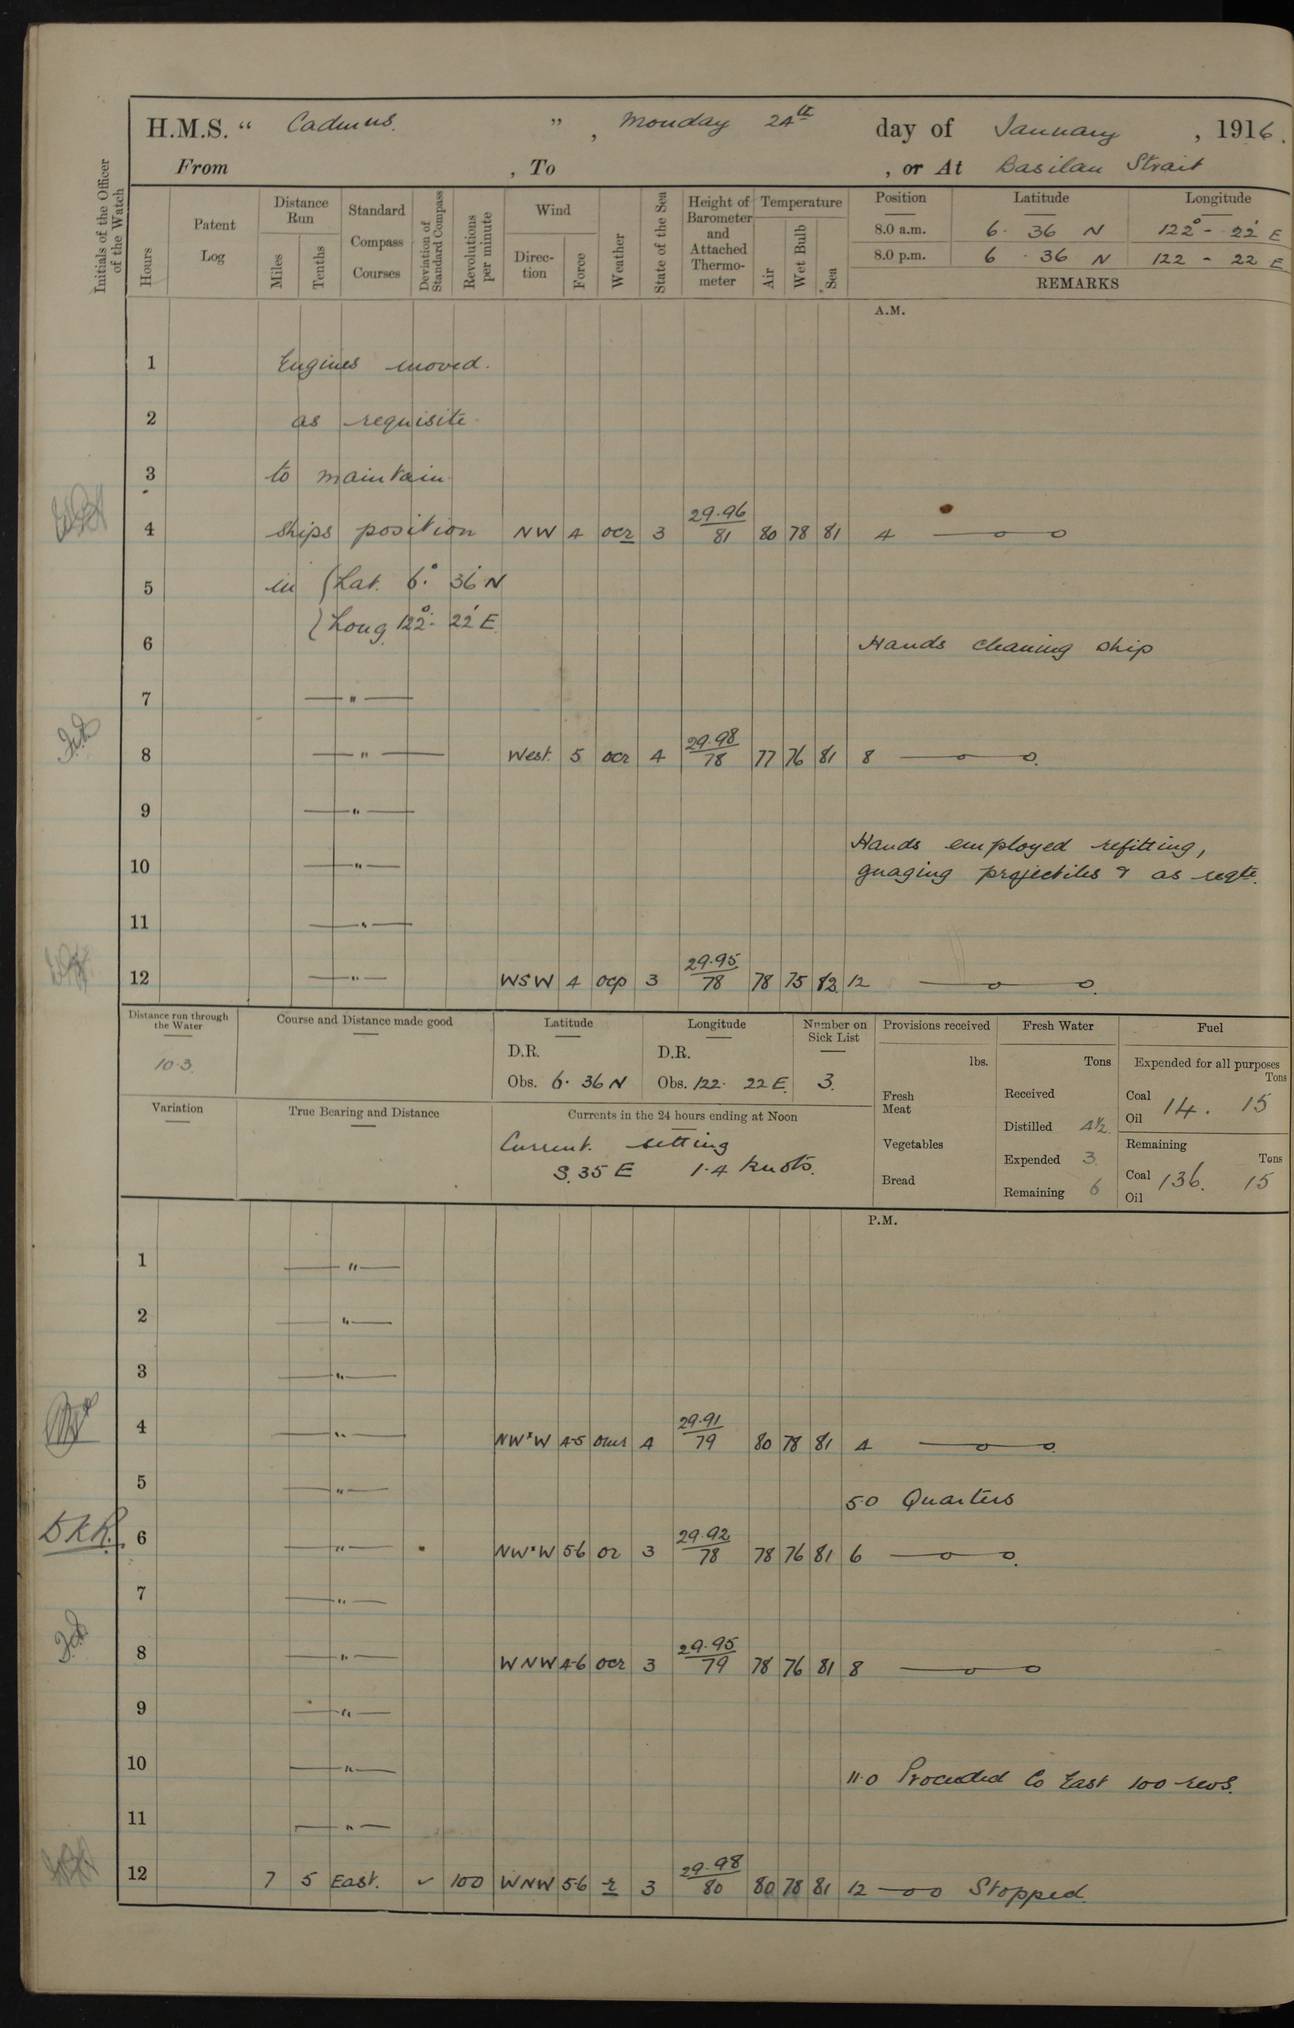 H.M.S. “ Cadmus. ” , Monday 24th day of January , 1916.
From , To , or At Basilan Strait
Initials of the Officer of the Watch
Hours
Patent Log
Distance Run
Miles
Tenths
Standard Compass Courses
Deviation of Standard Compass
Revolutions per minute
Wind
Direc-tion
Force
Weather
State of the Sea
Height of Barometer and Attached Thermo-meter
Temperature
Air
Wet Bulb
Sea
Position Latitude Longitude
8.0 a.m. 6. 36 N 122° - 22' E
8.0 p.m. 6 . 36 N 122 - 22 E
REMARKS
A.M.
1 Engines moved.
2 as requisite
3 to maintain
4 ships position NW 4 ocr 3 29.96/81 80 78 81 4 —o—o
5 in (Lat. 6.° 36' N
(Long 122°- 22' E
6 Hands cleaning ship
7 — " —
8 — " — West. 5 ocr 4 29.98/78 77 76 81 8 —o—o.
9 — " —
Hands employed refitting,
10 — " — guaging projectiles & as reqte.
11 — " —
12 — " — WSW 4 ocp 3 29.95/78 78 75 82 12 —o—o.
Distance run through the Water
10.3.
Course and Distance made good
Latitude
D.R.
Obs. 6. 36 N
Longitude
D.R.
Obs. 122. 22 E.
Number on Sick List
3.
Provisions received
lbs.
Fresh Meat
Vegetables
Bread
Fresh Water
Tons
Received
Distilled 4½.
Expended 3.
Remaining 6
Fuel
Expended for all purposes
Tons
Coal 14. 15
Oil
Remaining
Tons
Coal 136. 15
Oil
Variation
True Bearing and Distance
Currents in the 24 hours ending at Noon
Current. setting
S. 35 E 1.4 knots.
P.M.
1 — " —
2 — " —
3 — " —
4 — " — NW×W 4-5 4 29.91/79 80 78 81 4 —o—o.
5 — " —
5.0 Quarters
D.K.R. 6 — " — NW×W 5-6 or 3 29.92/78 78 76 81 6 —o—o.
7 — " —
8 — " — WNW 4-6 ocr 3 29.95/79 78 76 81 8 —o—o
9 — " —
10 — " —
11.0 Proceeded Co East 100 revs.
11 — " —
12 7 5 East. ✓ 100 WNW 5-6 r 3 29.98/80 80 78 81 12 —o o Stopped.